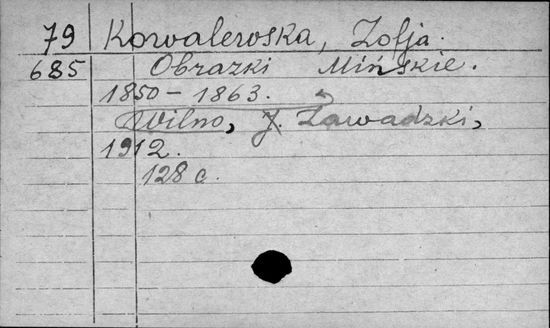 79 Kowalewska, Zofja.
685 Obrazki Mińskie.
1850-1863.
Wilno, J. Zawadzki,
1912.
128 c.